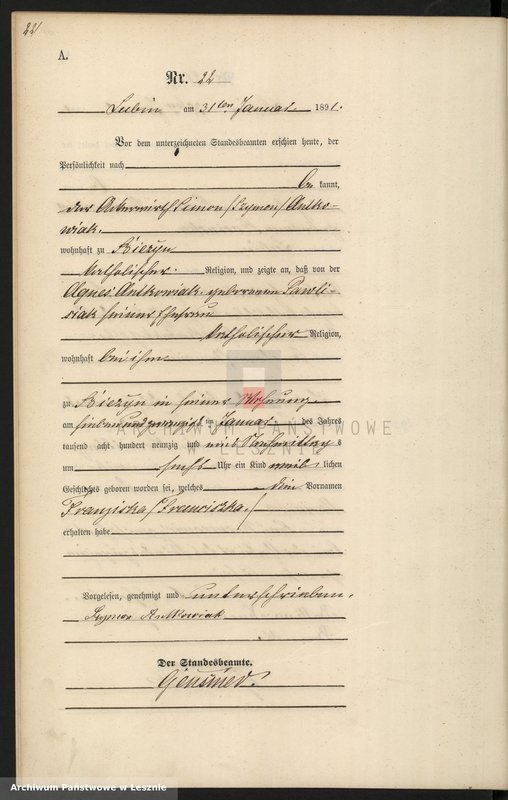 22
A.
Nr. 22
Lubin am 31ten Januar 1891.
Vor dem unterzeichneten Standesbeamten erschien heute, der
Persönlichkeit nach
be kannt,
der Ackerwirth Simon / Szymon / Antko-
wiak.
wohnhaft zu Bieżyn
katholischer Religion, und zeigte an, daß von der
Agnes Antkowiak geborenen Pawli-
ciak seiner Ehefrau
katholischer Religion,
wohnhaft bei ihm
zu Bieżyn in seiner Wohnung
am sieben und zwanzigsten Januar des Jahres
tausend acht hundert neunzig und eins Nachmittag s
um Uhr ein Kind weib lichen
Geschlechts geboren worden sei, welches den Vornamen
Franziska / Franciszka /
erhalten habe
Vorgelesen, genehmigt und unterschrieben.
Szymon Antkowiak
Der Standesbeamte.
ARCHIWUM PAŃSTWOWE
W LESZNIE
Archiwum Panstwowe w Lesznie